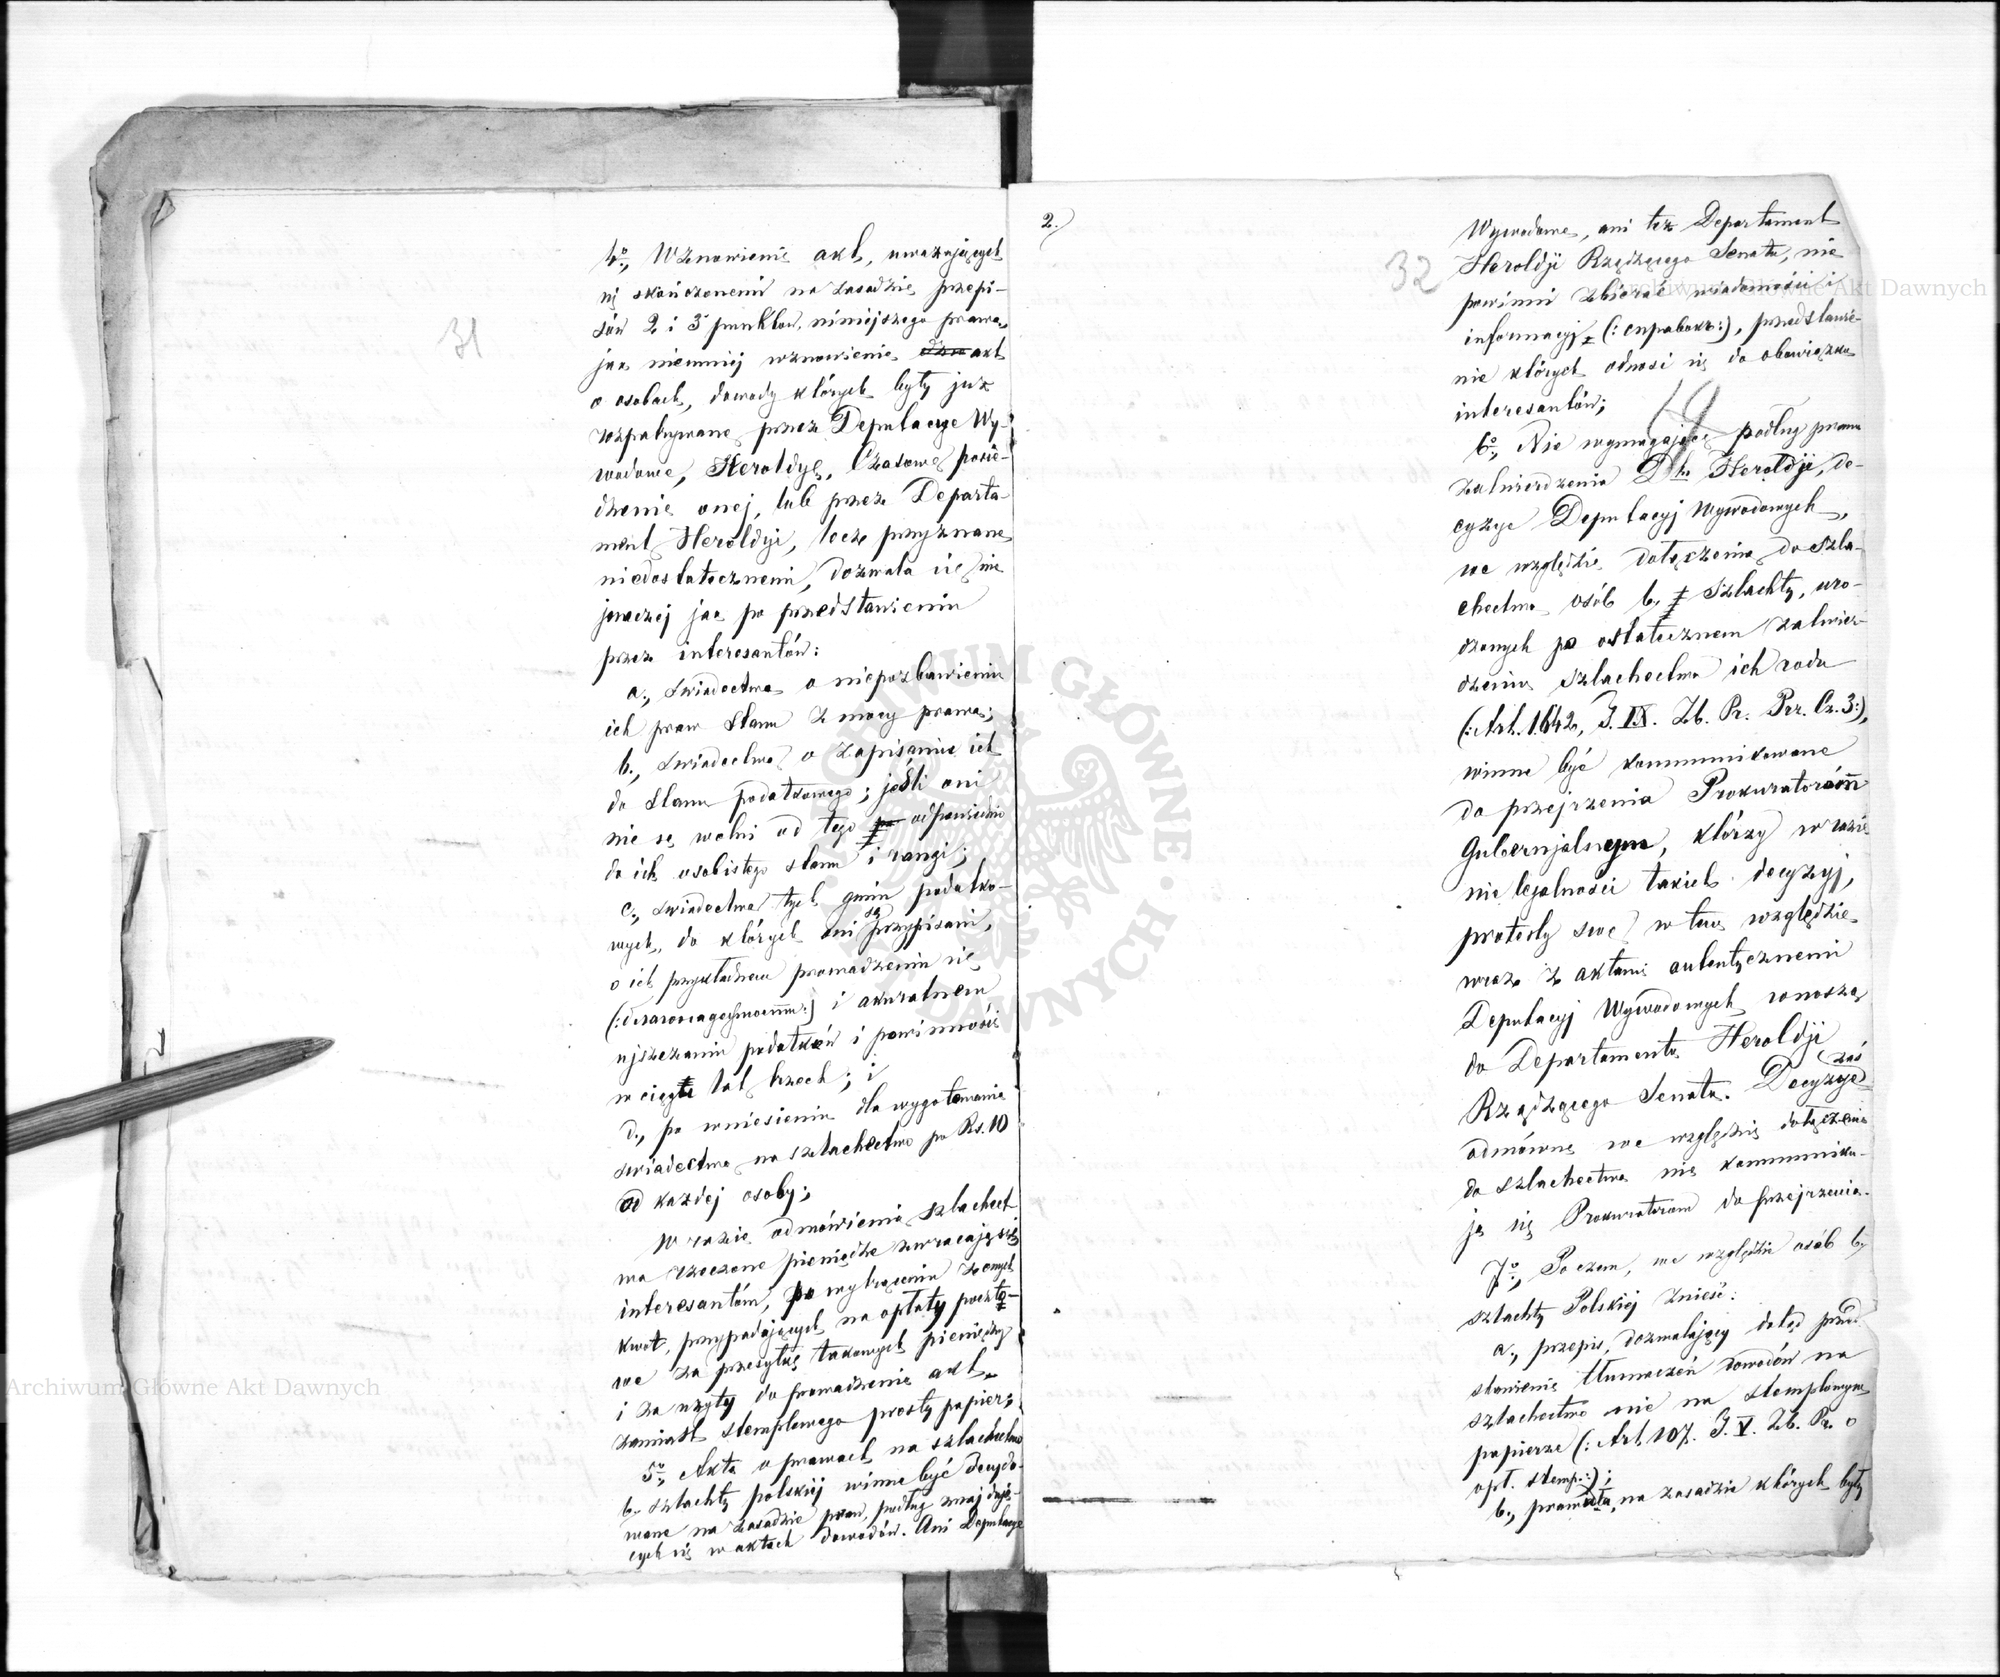 31
4º, Wznowienie akt, uważających
się skończonemi na zasadzie przepi-
sów 2 i 3 punktów niniejszego prawa,
jak niemniej wznowienie akt
o osobach, dowody których były już
rozpatrywane przez Deputacye Wy-
wodowe, Heroldyę, Czasowe posie-
dzenie onej, lub przez Departa-
ment Heroldyi, lecz przyznane
niedostatecznemi, dozwala się nie
inaczej jak po przedstawieniu
przez interesantów:
a., świadectwa o niepozbawieniu
ich praw stanu z mocy prawa;
b., świadectwa o zapisaniu ich
do stanu podatkowego; jeśli oni
nie są wolni od tego odpowiednio
do ich osobistego stanu i rangi;
c., świadectwa tych gmin podatko-
wych, do których oni są przypisani,
o ich przykładnem prowadzeniu się
i akuratnem
ujszczaniu podatków i powinności
w ciągu lat trzech; i
d., po wniesieniu dla wygotowania
świadectwa na szlachectwo po Rs. 10
od każdej osoby;
W razie odmówienia szlachect
wa rzeczone pieniądze zwracają się
interesantom, po wytrąceniu z onych
kwot, przypadających na opłaty poczto-
we za przesyłkę takowych pieniędzy
i za użyty do prowadzenia akt,
zamiast stemplowego prosty papier;
5º, Akta o prawach na szlachectwo
b. szlachty polskiej winne być decydo-
wane na zasadzie praw, podług znajdują-
cych się w aktach dowodów. Ani Deputacye
2.)
32
Wywodowe, ani też Departament
Heroldji Rządzącego Senatu, nie
powinni zbierać wiadomości i
informacyj (: :), przedstawie-
nie których odnosi się do obowiązku
interesantów;
6º, Nie wymagające podług prawa
zatwierdzenia Dh. Heroldji, de-
cyzye Deputacyj Wywodowych,
we względzie dołączenia do szla-
chectwa osób b. szlachty, uro-
dzonych po ostatecznem zatwier-
dzeniu szlachectwa ich rodu
(: Art. 1642, T. IX. Zb. Pr. Prz. Cz. 3:),
winne być kommunikowane
do przejrzenia Prokuratorom
Gubernjalnym, którzy w razie
nielegalności takich decyzyj,
protesty swe w tem względzie
wraz z aktami autentycznemi
Deputacyj Wywodowych wnoszą
do Departamentu Heroldji
Rządzącego Senatu. Decyzye zaś
odmówne we względzie dołączenia
do szlachectwa nie kommuniku-
ją się Prokuratorom do przejrzenia.
7º, Poczem, we względzie osób b.
szlachty Polskiej znieść:
a., przepis, dozwalający dotąd przed
stawienie tłumaczeń dowodów na
szlachectwo nie na stemplowym
papierze (: Art. 107. T. V. Zb. Pr. o
opł. stemp.:);
b., prawidła, na zasadzie których były
Archiwum Główne Akt Dawnych
Archiwum Główne Akt Dawnych
ARCHIWUM GŁÓWNE AKT DAWNYCH